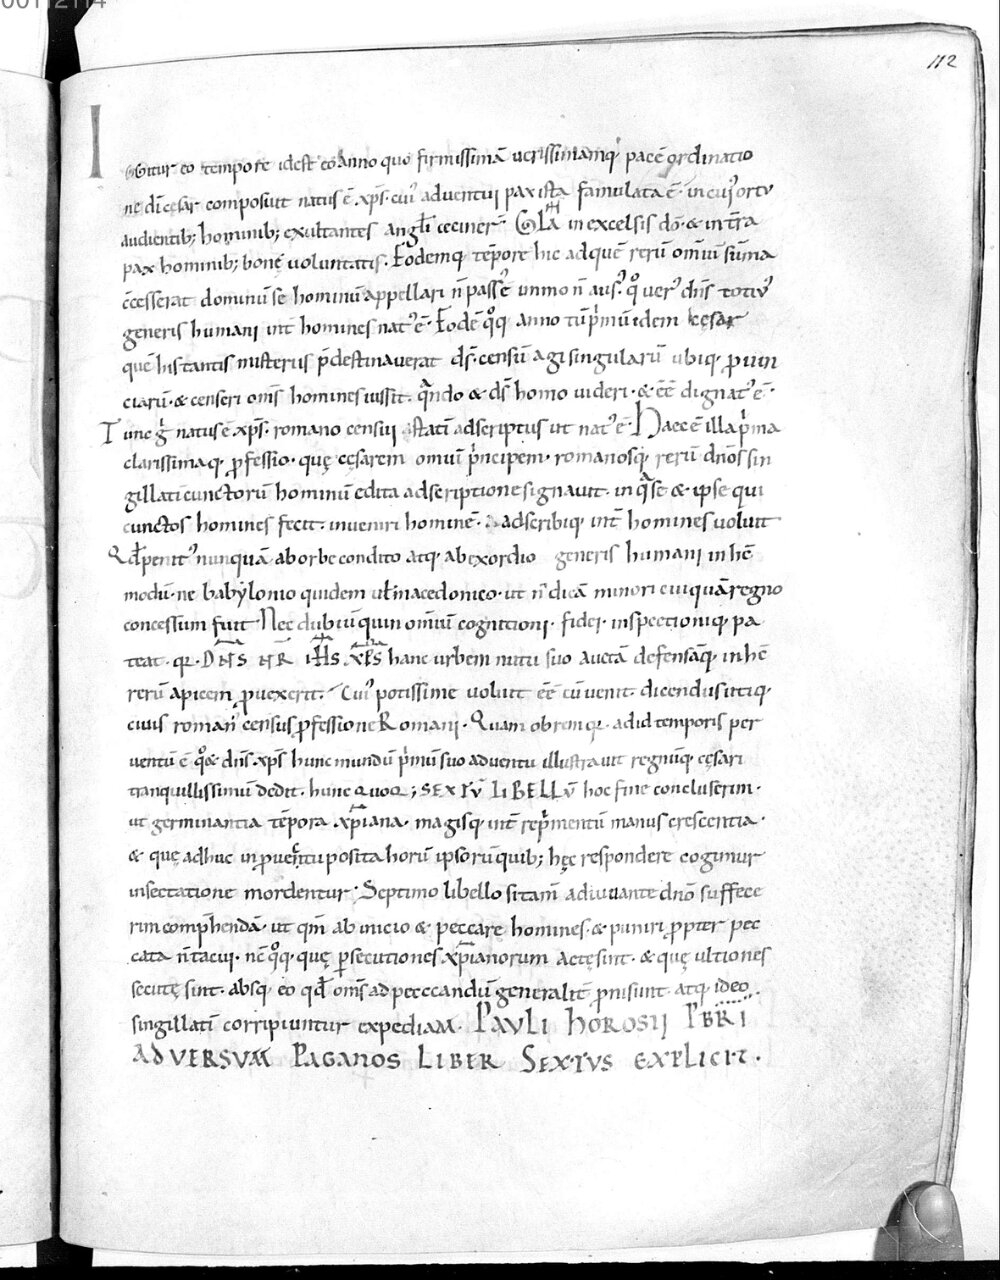 112
IGitur eo tempore idest eo anno quo firmissimā uerissimamq; pacē ordinatio
ne dī cesar composuit natus ē xp̄s· cui' aduentui pax ista famulata ē· in cui' ortu
audientib; hominib; exultantes angl̄i ceciner̄· Gl̄a in excelsis dō· & in tr̄a
pax hominib; bonę uoluntatis· Eodemq; tēpore hic ad quē rerū omīū sūma
c̄cesserat dominū se hominū appellari n̄ passus ē immo n̄ ausus· q̊ uer' dn̄s toti'
generis humani int̄ homines nat' ē· Eodē q̊q; anno tū p̄mū idem cęsar
quē his tantis misteriis p̄destinauerat ds̄· censū agi singularū ubiq; prouin
ciarū· & censeri om̄s homines iussit· q̄ndo & ds̄ homo uideri· & ēē dignat' ē·
Tunc ḡ natus ē xp̄s· romano censui statī adscriptus ut nat' ē· Haec ē illa p̄ma
clarissimaq; p̄fessio· quę cęsarem omīū p̄ncipem· romanosq; rerū dn̄os sin
gillatī cunctorū hominū edita adscriptione signauit· in q̄ se & ipse qui
cunctos homines fecit· inueniri hominē· adscribiq; int̄ homines uoluit
Qd̄ penit' nunquā ab orbe condito atq; ab exordio generis humani in hc̄
modū· ne babylonio quidem ul̄ macedonico· ut n̄ dicā minori cuiquā regno
concessum fuit Nec dubiū quin omīū cognitioni· fidei· inspectioniq; pa
teat· q;· DN̄S NR̄ IH̄S XP̄S hanc urbem nutu suo auctā defensāq; in hc̄
rerū apicem prouexerit· Cui' potissime uoluit ēē cū uenit· dicendus utiq;
ciuis roman' census p̄fessione Romani· Quam obrem q;· ad id temporis per
uentū ē q̊ & dn̄s· xp̄s hunc mundū p̄mū suo aduentu illustrauit regnūq; cęsari
tranquillissimū dedit· hunc quoq; SEXTŪ LIBELLŪ hoc fine concluserim·
ut germinantia tēpora xp̄iana· magisq; int̄ rep̄mentū manus crescentia·
& quę adhuc in prouectu posita horū ipsorū quib; hęc respondere cogimur
insectatione mordentur· Septimo libello si tam̄ adiuuante dn̄o suffece
rim comp̄hendā· ut qm̄ ab inicio & peccare homines· & puniri propter pec
cata n̄ tacui· nc̄ q̊q; quę p̄secutiones xp̄ianorum actę sint· & quę ultiones
secutę sint· absq; eo qd̄ om̄s ad pecccandū generalit̄ pronisunt· atq; ideo
singillatī corripiuntur expediam· PAULI HOROSII PB̄RI
ADVERSUM PAGANOS LIBER SEXTUS EXPLICIT·